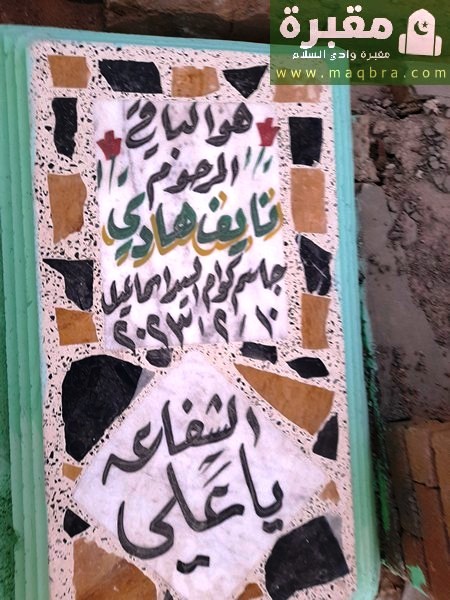 مقبرة
مقبرة وادي السلام
www.maqbra.com
هو الباقي
المرحوم
نايف هادي
جاسم كوام السيد اسماعيل
٢٠٢٣/٢/١٠
الشفاعه
يا علي